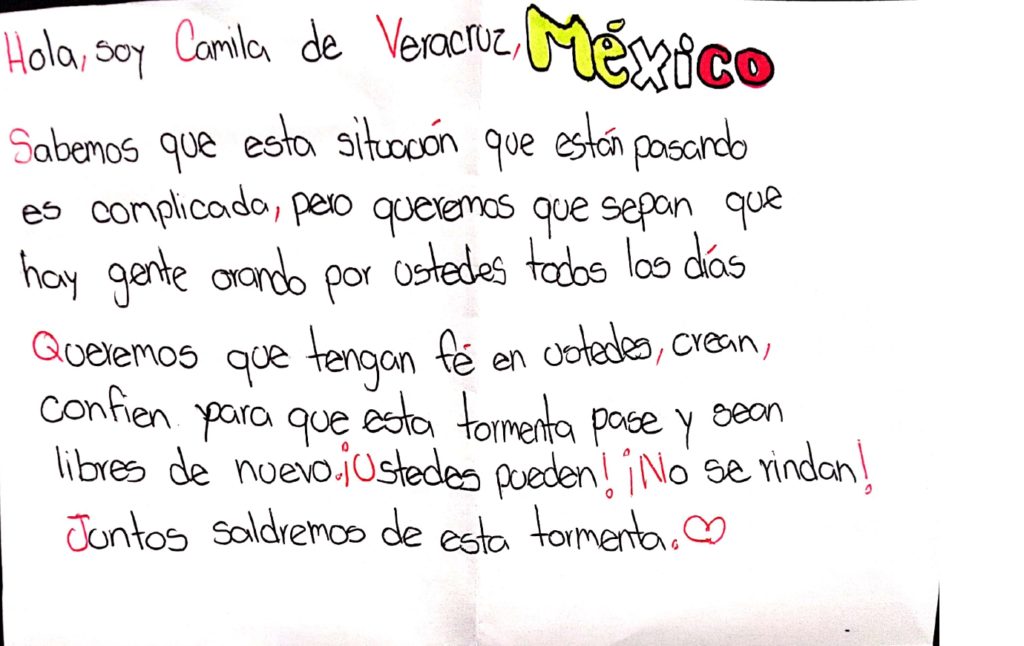 Hola, soy Camila de Veracruz, México
Sabemos que esta situación que están pasando
es complicada, pero queremos que sepan que
hay gente orando por ustedes todos los días
Queremos que tengan fé en ustedes, crean,
confien para que esta tormenta pase y sean
libres de nuevo. ¡Ustedes pueden! ¡No se rindan!
Juntos saldremos de esta tormenta.